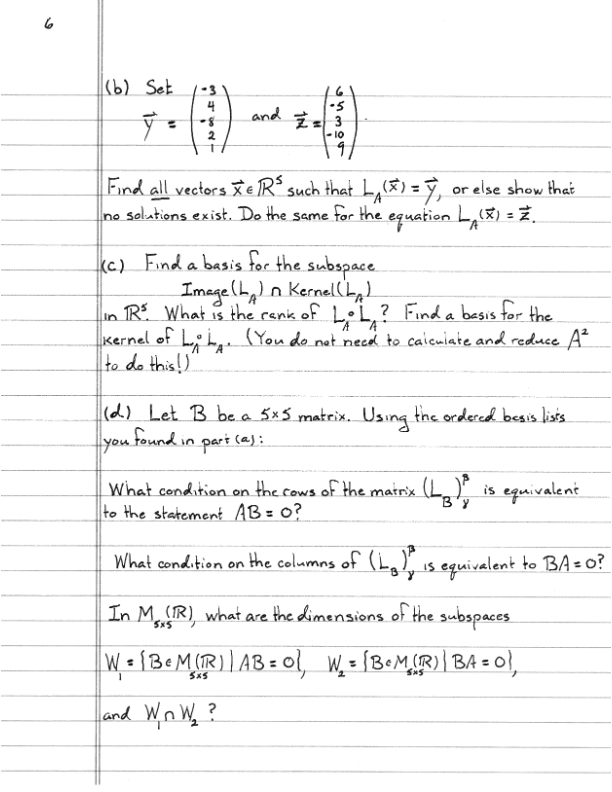 6
(b) Set y⃗ = (-3 4 -8 2 1) and z⃗ = (6 -5 3 -10 9).
Find all vectors x⃗ ∈ ℝ⁵ such that L_A(x⃗) = y⃗, or else show that
no solutions exist. Do the same for the equation L_A(x⃗) = z⃗.
(c) Find a basis for the subspace
Image(L_A) ∩ Kernel(L_A)
in ℝ⁵. What is the rank of L_A∘L_A? Find a basis for the
kernel of L_A∘L_A. (You do not need to calculate and reduce A²
to do this!)
(d) Let B be a 5×5 matrix. Using the ordered basis lists
you found in part (a):
What condition on the rows of the matrix (L_B)^β_γ is equivalent
to the statement AB = 0?
What condition on the columns of (L_B)^β_γ is equivalent to BA = 0?
In M_5×5(ℝ), what are the dimensions of the subspaces
W₁ = {B ∈ M_5×5(ℝ) | AB = 0}, W₂ = {B ∈ M_5×5(ℝ) | BA = 0},
and W₁ ∩ W₂ ?